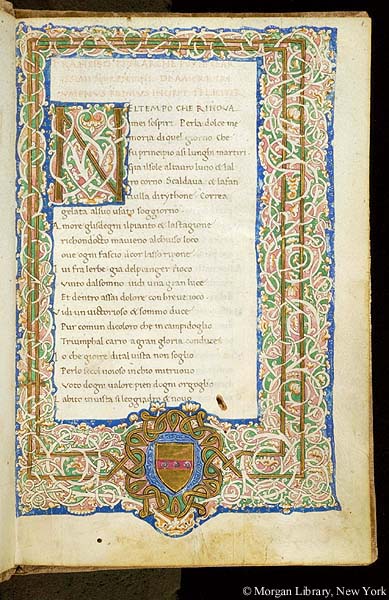 EL TEMPO CHE RINOVA
imei sospiri. Perla dolce me
moria di quel giorno Che
fu principio asi lunghi martiri
Gia il sole al tauro luno & lal
tro corno Scaldaua & la fan
ciulla di tythone Correa
gelata al suo usato soggiorno
Amore gli sdegni il pianto & la stagione
richondotto mauieno al chiuso loco
oue ogni fascio il cor lasso ripone
ui fra lerbe gia del pianger fioco
uinto dal sonno uidi una gran luce
Et dentro assai dolore con breue ioco
uidi un uictorioso & sommo duce
Pur comun di color che in campidoglio
Triumphal carro a gran gloria conduce
o che gioire di tal uista non soglio
Perlo secol noioso in chio mi truouo
Voto dogni ualore pien dogni orgoglio
Labito in uista si leggiadro & nouo
© Morgan Library, New York